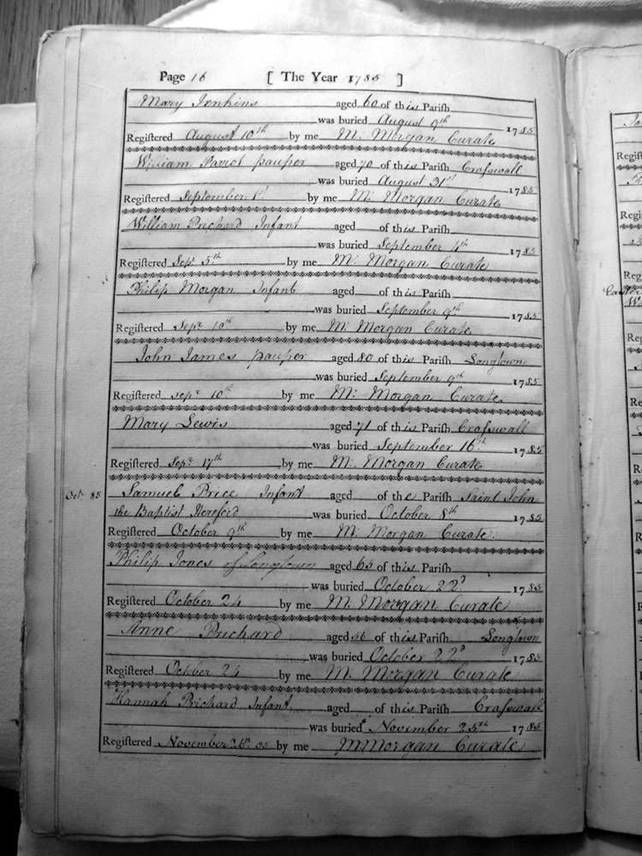 Page 16 [ The Year 1785 ]
Mary Jenkins aged 60 of this Parish
was buried August 9th 1785
Registered August 10th by me M. Morgan Curate
William Parrot pauper aged 70 of this Parish Crasswall
was buried August 31st 1785
Registered September 1st by me M. Morgan Curate
William Prichard Infant aged of this Parish
was buried September 4th 1785
Registered Sept 5th by me M. Morgan Curate
Philip Morgan Infant aged of this Parish
was buried September 9th 1785
Registered Sepr 10th by me M. Morgan Curate
John James pauper aged 80 of this Parish Longtown
was buried September 9th 1785
Registered sepr 10th by me M. Morgan Curate
Mary Lewis aged 71 of this Parish Crasswall
was buried September 16th 1785
Registered Sepr 17th by me M. Morgan Curate
Octr 85 Samuel Price Infant aged of the Parish Saint John
the Baptist Hereford was buried October 8th 1785
Registered October 9th by me M. Morgan Curate
Philip Jones of Longtown aged 65 of this Parish
was buried October 22d 1785
Registered October 24 by me M. Morgan Curate
Anne Prichard aged 56 of this Parish Longtown
was buried October 22d 1785
Registered October 24 by me M. Morgan Curate
Hannah Prichard Infant aged of this Parish Craswall
was buried November 25th 1785
Registered November by me M Morgan Curate